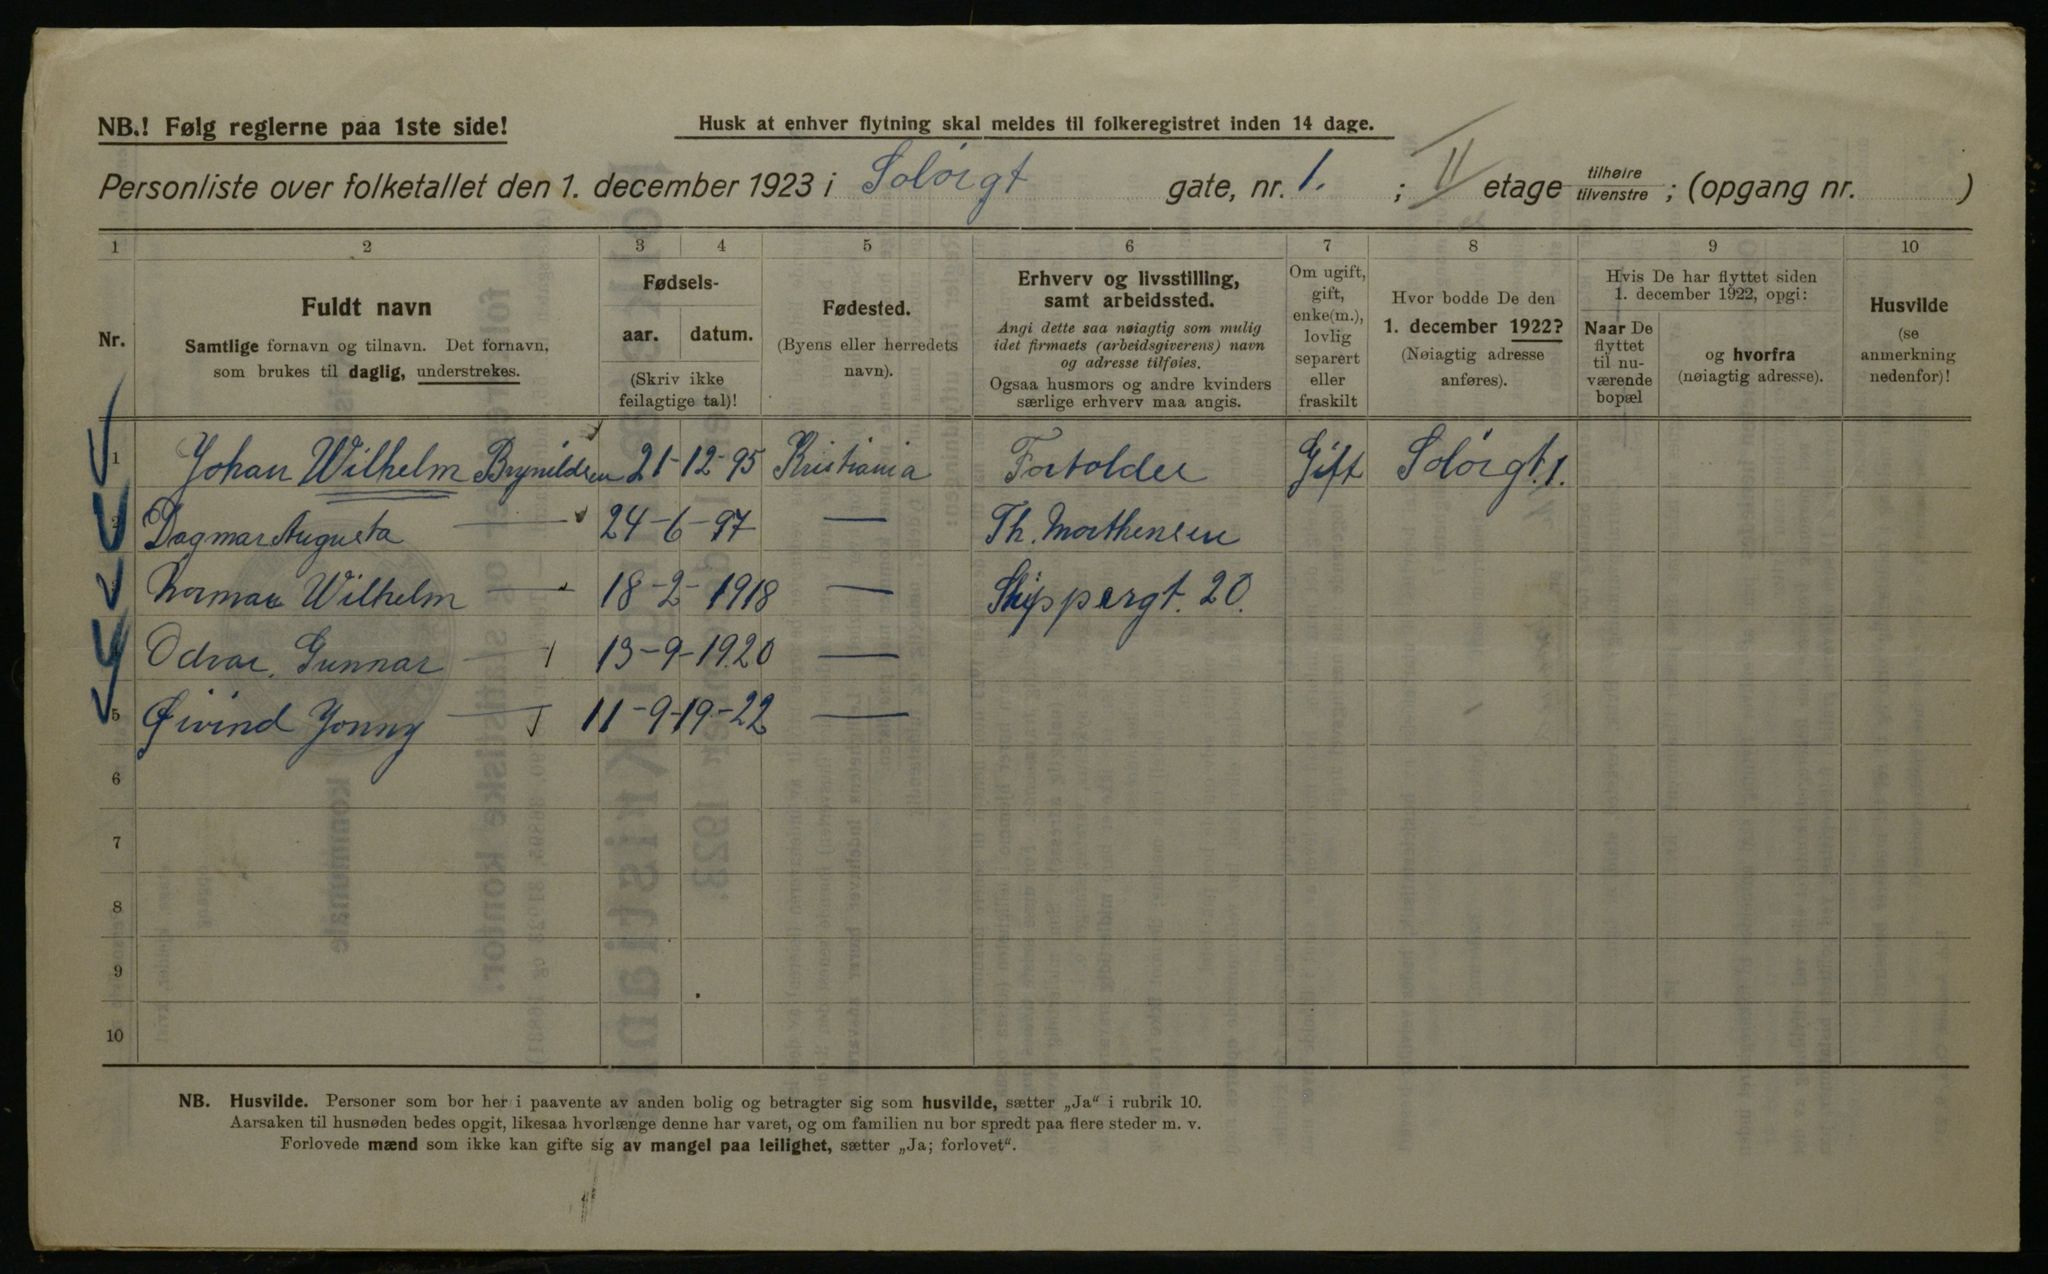 NB.! Følg reglerne paa 1ste side!
Husk at enhver flytning skal meldes til folkeregistret inden 14 dage.
Personliste over folketallet den 1. december 1923 i Solørgt gate, nr. 1. ; II etage tilhøire tilvenstre ; (opgang nr. )
1 2 3 4 5 6 7 8 9 10
Nr.
Fuldt navn
Samtlige fornavn og tilnavn. Det fornavn,
som brukes til daglig, understrekes.
Fødsels-
aar. datum.
(Skriv ikke
feilagtige tal)!
Fødested.
(Byens eller herredets
navn).
Erhverv og livsstilling,
samt arbeidssted.
Angi dette saa nøiagtig som mulig
idet firmaets (arbeidsgiverens) navn
og adresse tilføies.
Ogsaa husmors og andre kvinders
særlige erhverv maa angis.
Om ugift,
gift,
enke(m.),
lovlig
separert
eller
fraskilt
Hvor bodde De den
1. december 1922?
(Nøiagtig adresse
anføres).
Hvis De har flyttet siden
1. december 1922, opgi:
Naar De
flyttet
til nu-
værende
bopæl
og hvorfra
(nøiagtig adresse).
Husvilde
(se
anmerkning
nedenfor)!
1 Johan Wilhelm Brynildsen 21-12-95 Kristiania Fortolder Gift Solørgt. 1.
2 Dagmar Augusta — 24-6-97 — Th. Morthensen
3 Norman Wilhelm — 18-2-1918 — Skippergt. 20.
Odvar. Gunnar — 13-9-1920 —
5 Øivind Yonny — 11-9-19-22 —
6
7
8
9
10
NB. Husvilde. Personer som bor her i paavente av anden bolig og betragter sig som husvilde, sætter „Ja“ i rubrik 10.
Aarsaken til husnøden bedes opgit, likesaa hvorlænge denne har varet, og om familien nu bor spredt paa flere steder m. v.
Forlovede mænd som ikke kan gifte sig av mangel paa leilighet, sætter „Ja; forlovet“.